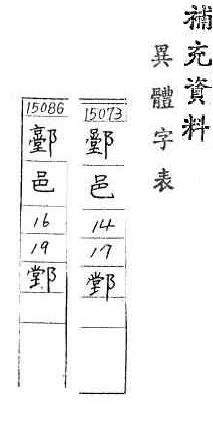 補充資料
異體字表
15073
邑
14
17
䣊
15086
邑
16
19
䣊